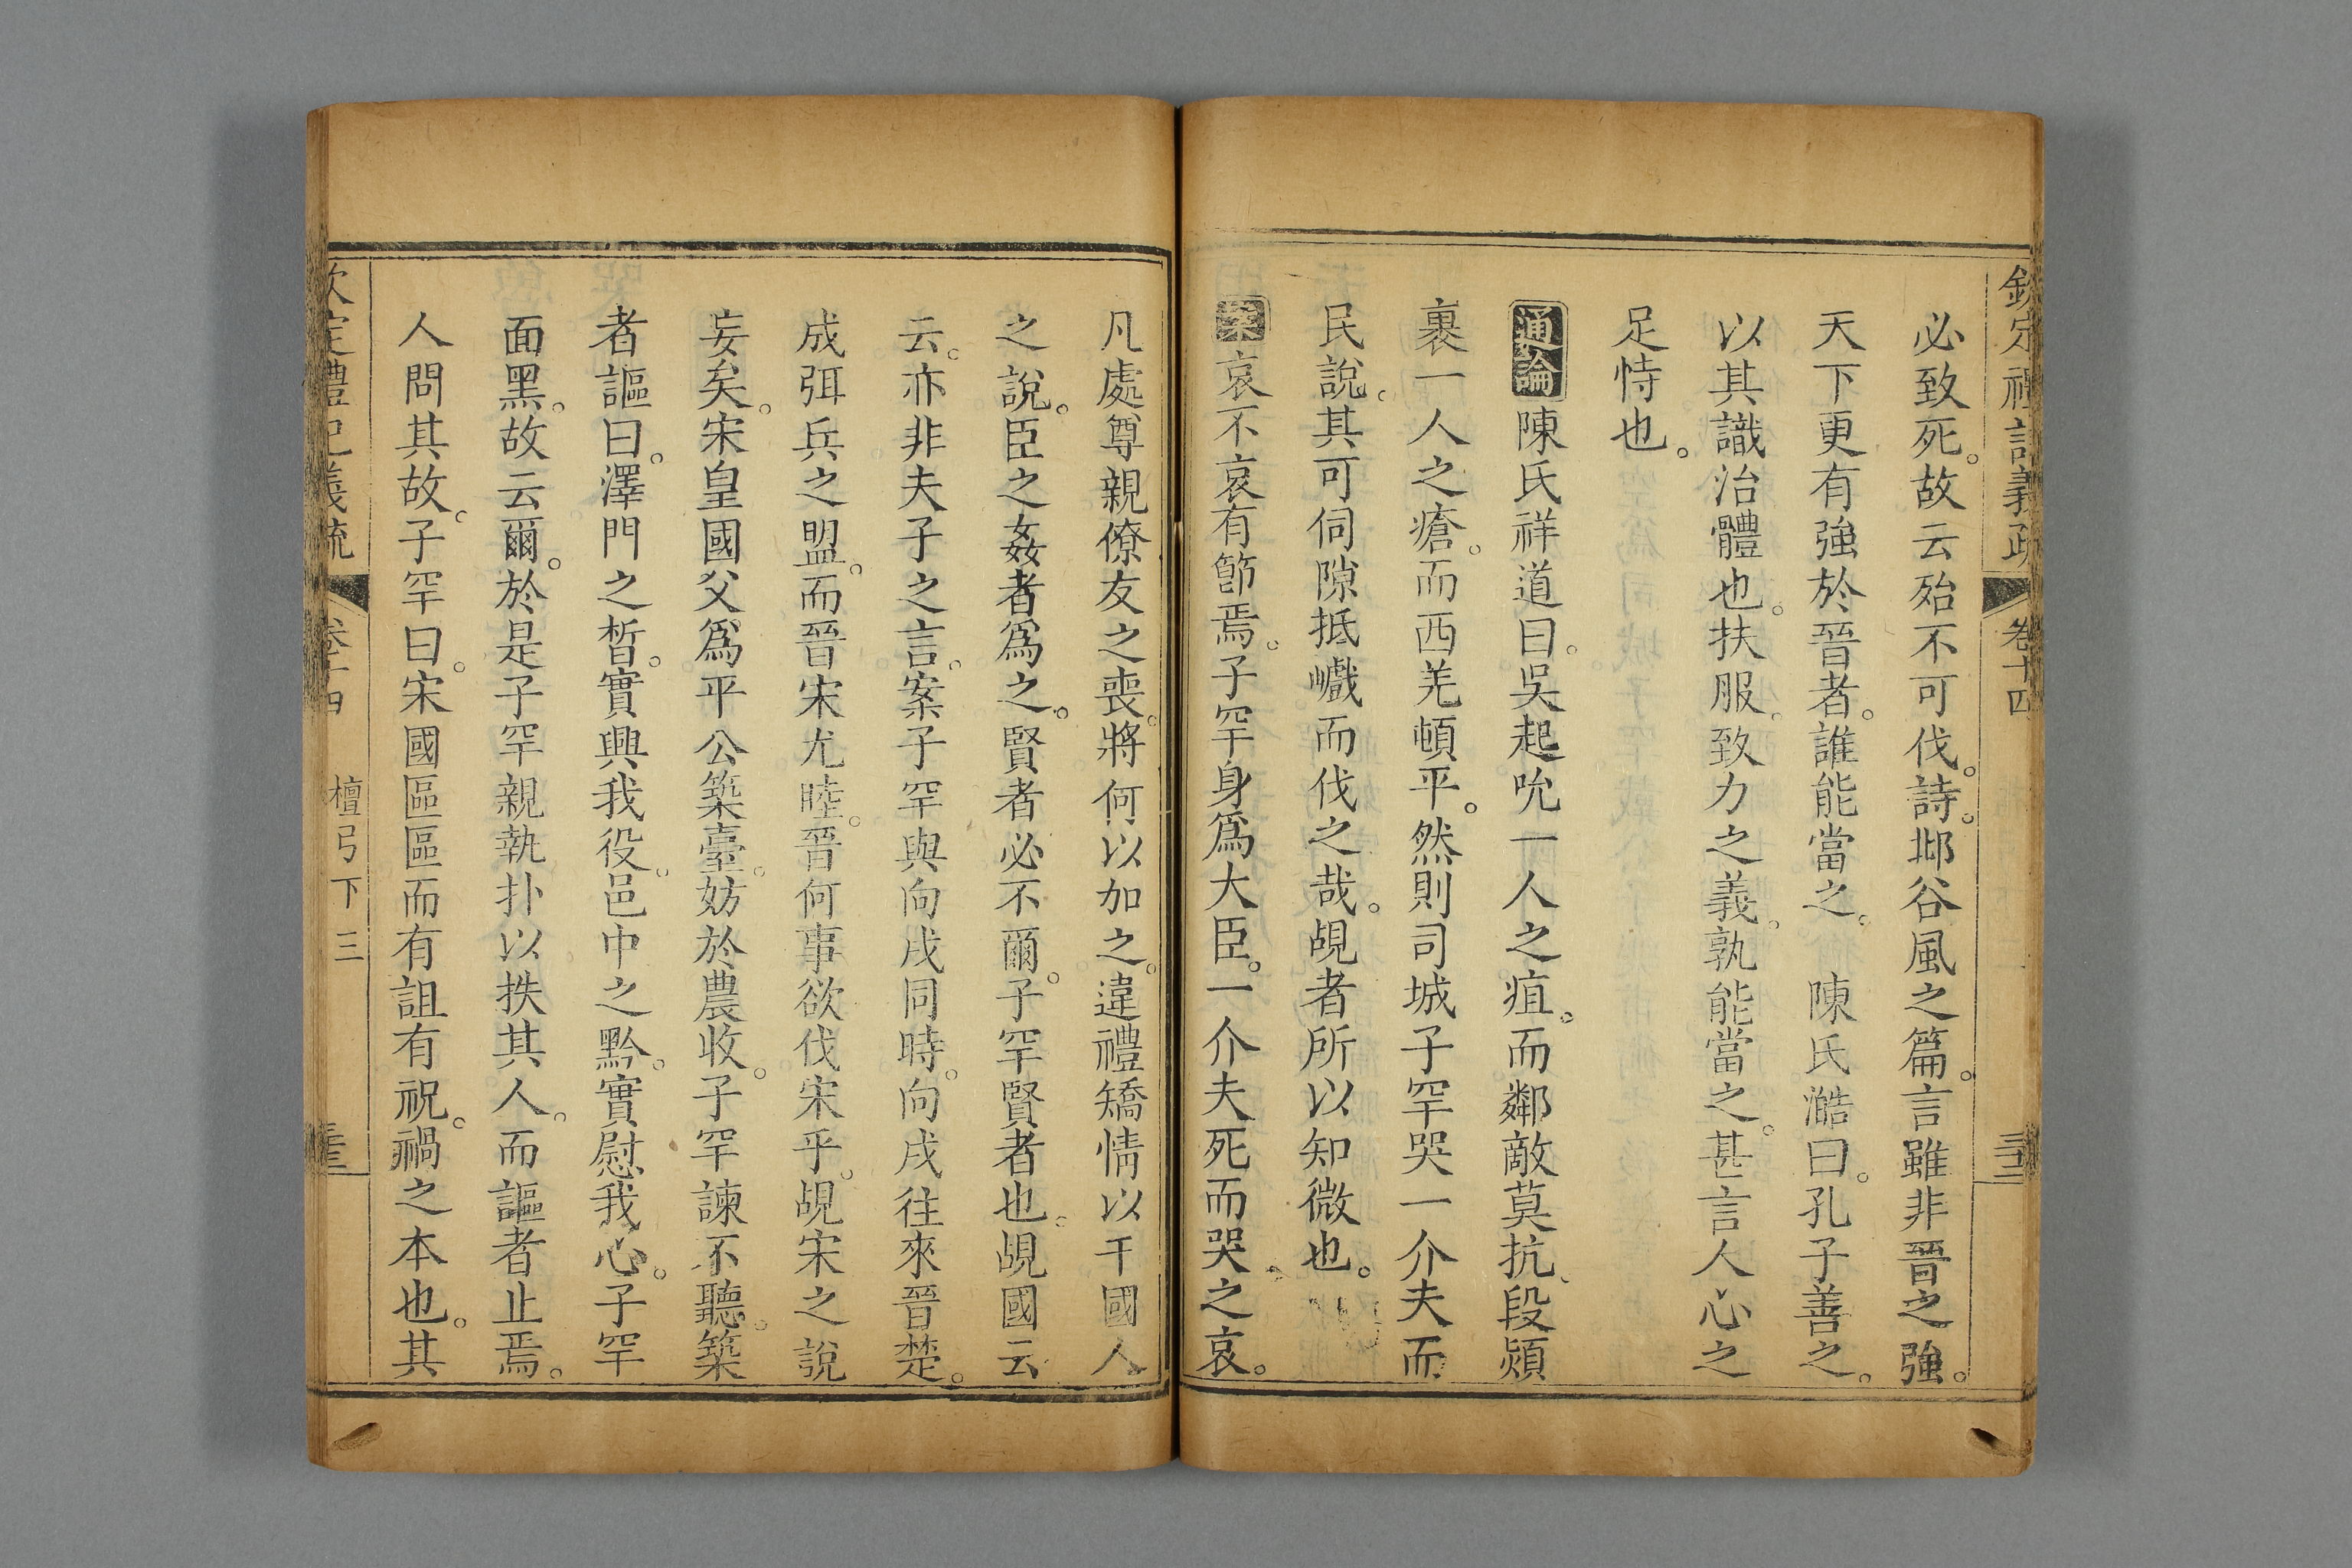 欽定禮記義疏 卷十四
必致死。故云殆不可伐。詩。邶谷風之篇。言雖非晉之強。
天下更有強於晉者。誰能當之。 陳氏澔曰。孔子善之。
以其識治體也。扶服。致力之義。孰能當之。甚言人心之
足恃也。
通論陳氏祥道曰。吳起吮一人之疽。而鄰敵莫抗、段熲
裹一人之瘡。而西羌頓平。然則司城子罕哭一介夫而
民說。其可伺隙抵巇而伐之哉。覘者所以知微也。
案哀不哀有節焉。子罕身爲大臣。一介夫死而哭之哀。
凡處尊親僚友之喪。將何以加之。違禮矯情以干國人
之說。臣之姦者爲之。賢者必不爾。子罕賢者也。覘國云
云。亦非夫子之言。案子罕與向戌同時。向戌往來晉楚。
成弭兵之盟。而晉宋尤睦。晉何事欲伐宋乎。覘宋之說
妄矣。宋皇國父爲平公築臺。妨於農收。子罕諫不聽。築
者謳曰。澤門之皙。實興我役。邑中之黔。實慰我心。子罕
面黑。故云爾。於是子罕親執扑以抶其人。而謳者止焉。
人問其故。子罕曰。宋國區區而有詛有祝。禍之本也。其
欽定禮記義疏 卷十四 檀弓下三